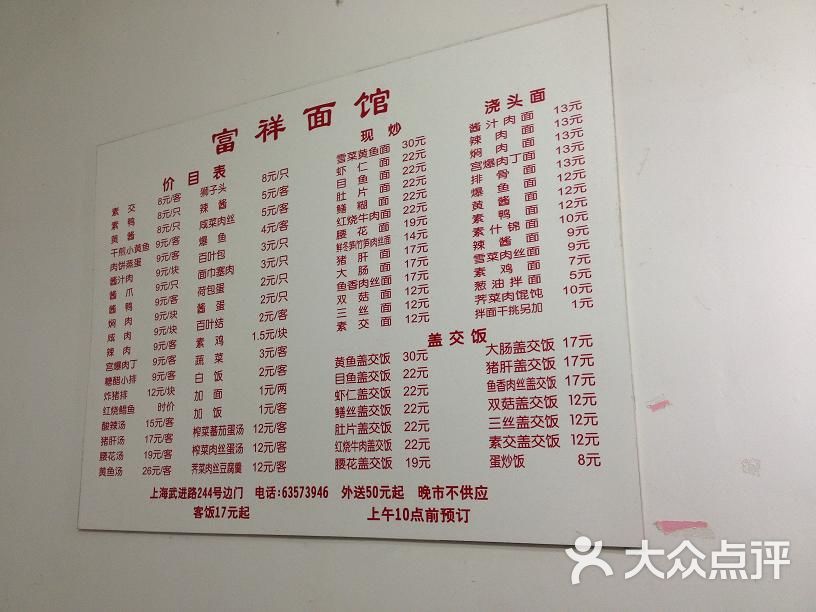 富祥面馆
价目表
素交 8元/客
素鸭 8元/只
黄酱 8元/客
干煎小黄鱼 9元/客
肉饼蒸蛋 9元/客
酱汁肉 9元/块
酱爪 9元/只
酱鸭 9元/客
焖肉 9元/块
咸肉 9元/块
辣肉 9元/客
宫爆肉丁 9元/客
糖醋小排 9元/客
炸猪排 12元/块
红烧鲳鱼 时价
酸辣汤 15元/客
猪肝汤 17元/客
腰花汤 19元/客
黄鱼汤 26元/客
狮子头 8元/只
辣酱 5元/客
咸菜肉丝 5元/客
爆鱼 4元/客
百叶包 3元/只
面巾塞肉 3元/只
荷包蛋 2元/只
酱蛋 2元/只
百叶结 2元/客
素鸡 1.5元/块
蔬菜 3元/客
白饭 2元/客
加面 1元/两
加饭 1元/客
榨菜蕃茄蛋汤 12元/客
榨菜肉丝蛋汤 12元/客
荠菜肉丝豆腐羹 12元/客
现炒
雪菜黄鱼面 30元
虾仁面 22元
目鱼面 22元
肚片面 22元
鳝糊面 22元
红烧牛肉面 22元
腰花面 19元
鲜冬笋竹笋肉丝面 14元
猪肝面 17元
大肠面 17元
鱼香肉丝面 17元
双菇面 12元
三丝面 12元
素交面 12元
浇头面
酱汁肉面 13元
辣肉面 13元
焖肉面 13元
宫爆肉丁面 13元
排骨面 13元
爆鱼面 12元
黄酱面 12元
素鸭面 12元
素什锦面 10元
辣酱面 9元
雪菜肉丝面 9元
素鸡面 7元
葱油拌面 5元
荠菜肉馄饨 10元
拌面干挑另加 1元
盖交饭
黄鱼盖交饭 30元
目鱼盖交饭 22元
虾仁盖交饭 22元
鳝丝盖交饭 22元
肚片盖交饭 22元
红烧牛肉盖交饭 22元
腰花盖交饭 19元
大肠盖交饭 17元
猪肝盖交饭 17元
鱼香肉丝盖交饭 17元
双菇盖交饭 12元
三丝盖交饭 12元
素交盖交饭 12元
蛋炒饭 8元
上海武进路244号边门 电话:63573946 外送50元起 晚市不供应
客饭17元起 上午10点前预订
大众点评